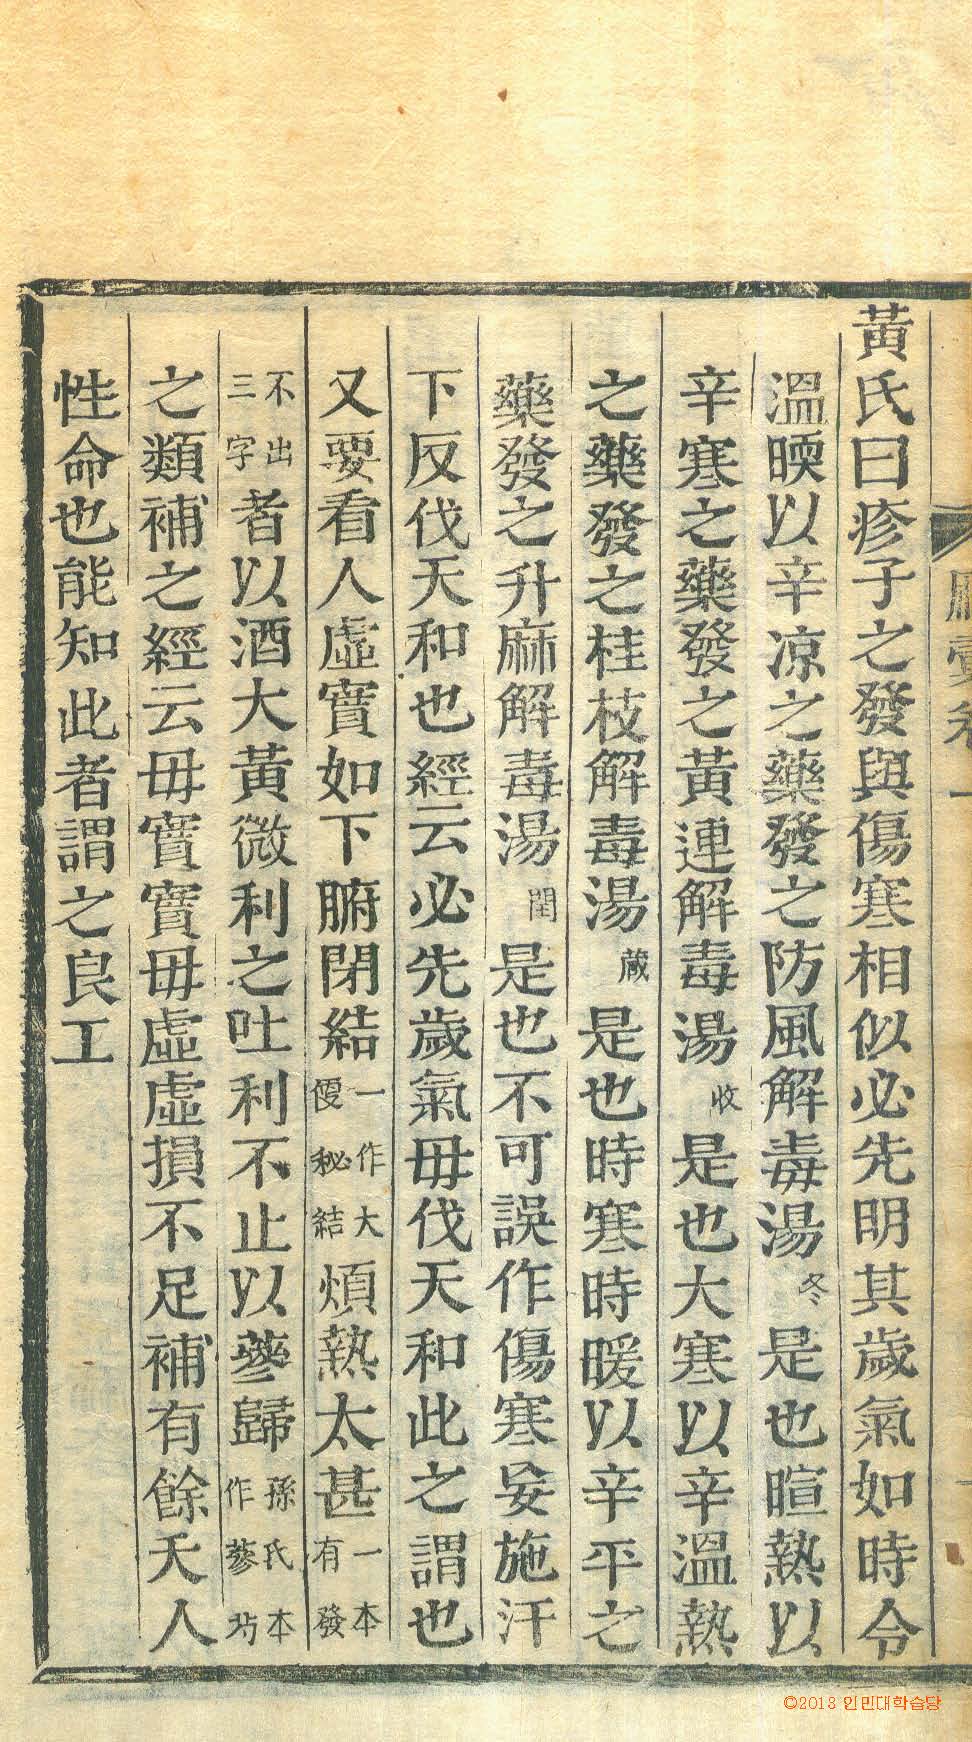 黃氏曰疹子之發與傷寒相似必先明其歲氣如時令
溫暎以辛凉之藥發之防風解毒湯冬是也暄熱以
辛寒之藥發之黃連解毒湯收是也大寒以辛溫熱
之藥發之桂枝解毒湯藏是也時寒時暖以辛平之
藥發之升麻解毒湯閏是也不可誤作傷寒妄施汗
下反伐天和也經云必先歲氣毋伐天和此之謂也
又要看人虛實如下腑閉結一作大便秘結煩熱太甚一本有發
不出三字者以酒大黃微利之吐利不止以蔘歸孫氏本作蔘芍
之類補之經云毋實實毋虛虛損不足補有餘天人
性命也能知此者謂之良工
卷一
©2013 인민대학습당